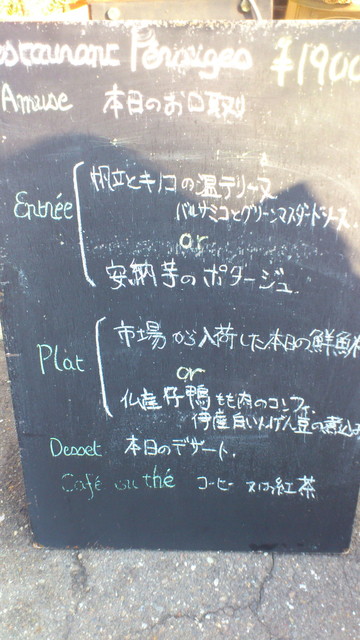 Restaurant Pérouges ¥1900
Amuse 本日のお口取り
Entrée
帆立とキノコの温テリーヌ
バルサミコとグリーンマスタードソース.
or
安納芋のポタージュ.
Plat
市場から入荷した本日の鮮魚
or
仏産仔鴨もも肉のコンフィ.
伊産白いんげん豆の煮込み
Desset 本日のデザート.
Café ou thé コーヒー 又は紅茶